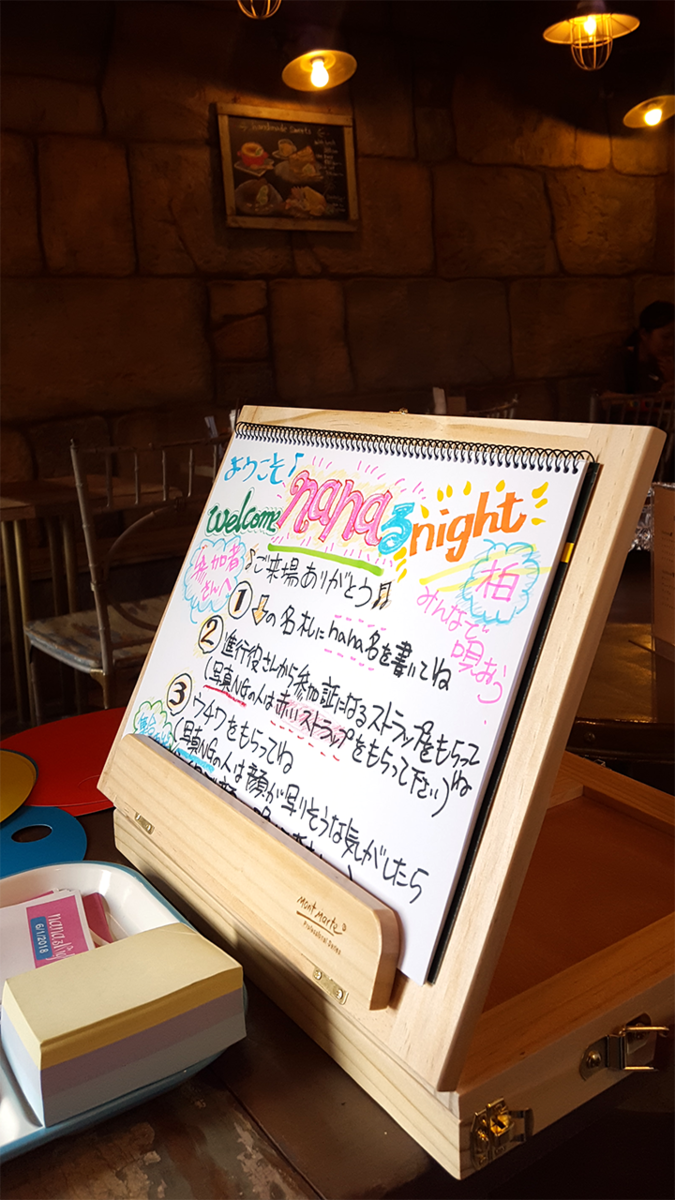 Homemade Sweets
ようこそ♪
welcome nanaるnight
参加者さんへ
♪ご来場ありがとう♬
柏
みんなで
唄おう
① ⇩の名札にnana名を書いてね
② 進行役さんから参加証になるストラップをもらってね
(写真NGの人は赤いストラップをもらって下さい)
③ ウチワをもらってね
(写真NGの人は顔が写りそうな気がしたら
Mont Marte
Professional Series
6/1/2018